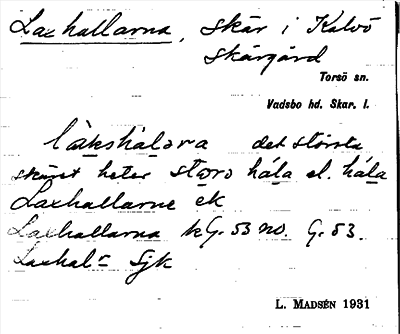 Laxhallarna, skär i Kalvö
skärgård
Torsö sn.
Vadsbo hd. Skar. l.
làkshàlara det största
skäret heter stòro hála el. hála
Laxhallarne ek
Laxhallarna kG. 53 no. G. 53.
Laxhal- Sjk
L. MADSÉN 1931